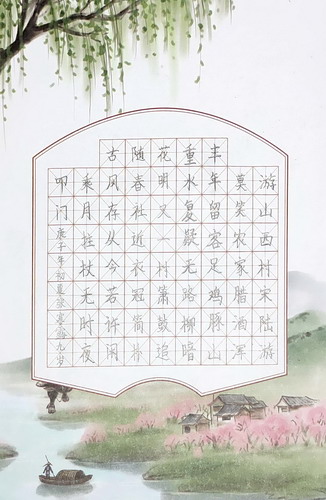 游山西村宋陆游
莫笑农家腊酒浑
丰年留客足鸡豚山
重水复疑无路柳暗
花明又一村箫鼓追
随春社近衣冠简朴
古风存从今若许闲
乘月拄杖无时夜
叩门
庚子年初夏九岁